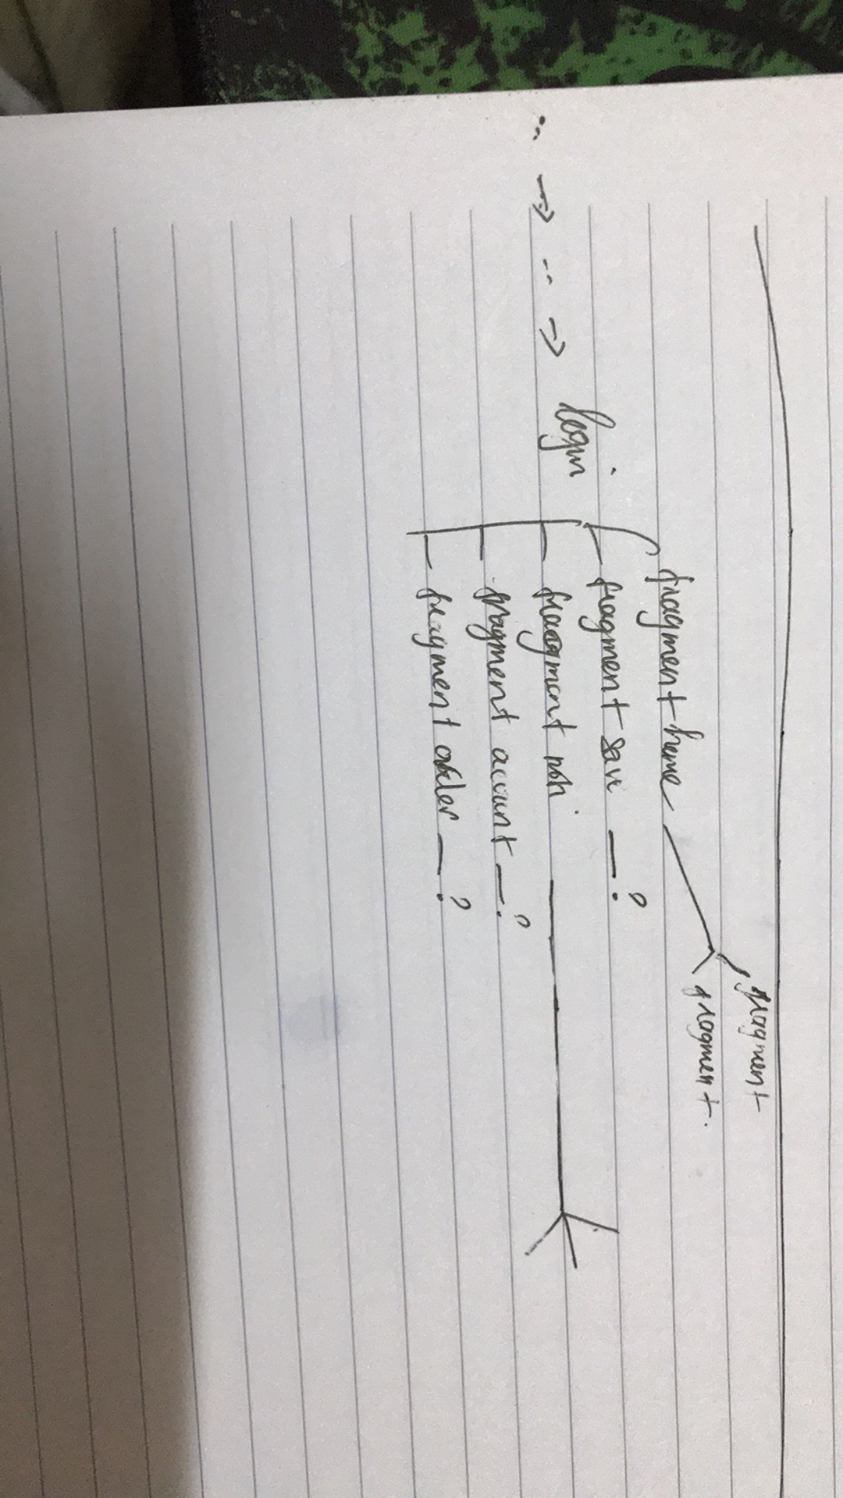 ... → .. → login
fragment home
fragment
fragment.
fragment save — ?
fragment noti
fragment account — ?
fragment order — ?